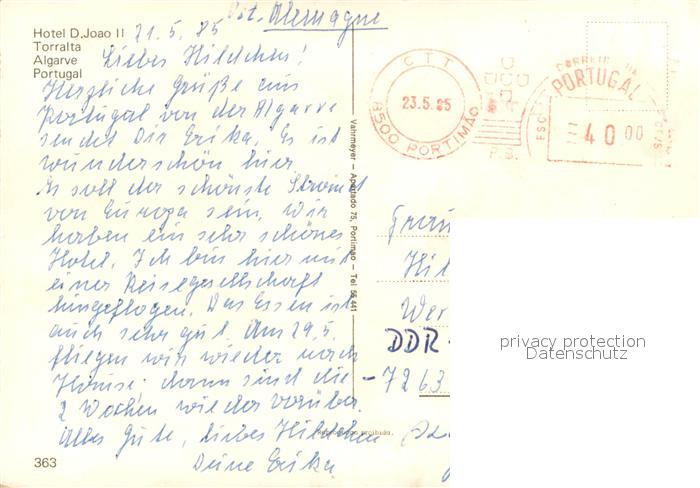 Hotel D.Joao II
Torralta
Algarve
Portugal
21.5.85
Ost-Allemagne
Liebes Hildchen!
Herzliche Grüße aus
Portugal von der Algarve
sendet Dir Erika. Es ist
wunderschön hier.
Es soll der schönste Strand
von Europa sein. Wir
haben ein sehr schönes
Hotel. Ich bin hier mit
einer Reisegesellschaft
hingeflogen. Das Essen ist
auch sehr gut. Am 29.5.
fliegen wir wieder nach
Hause; dann sind die
2 Wochen wieder vorüber.
Alles Gute, liebes Hildchen
Deine Erika
363
Vahrmeyer - Apartado 75, Portimao - Tel 55 441
CTT
23.5.85
8500 PORTIMÃO
P.B.
CORREIO
PORTUGAL
ESC.
40 00
Frau
Hil
Wer
DDR -
-7263
privacy protection
Datenschutz